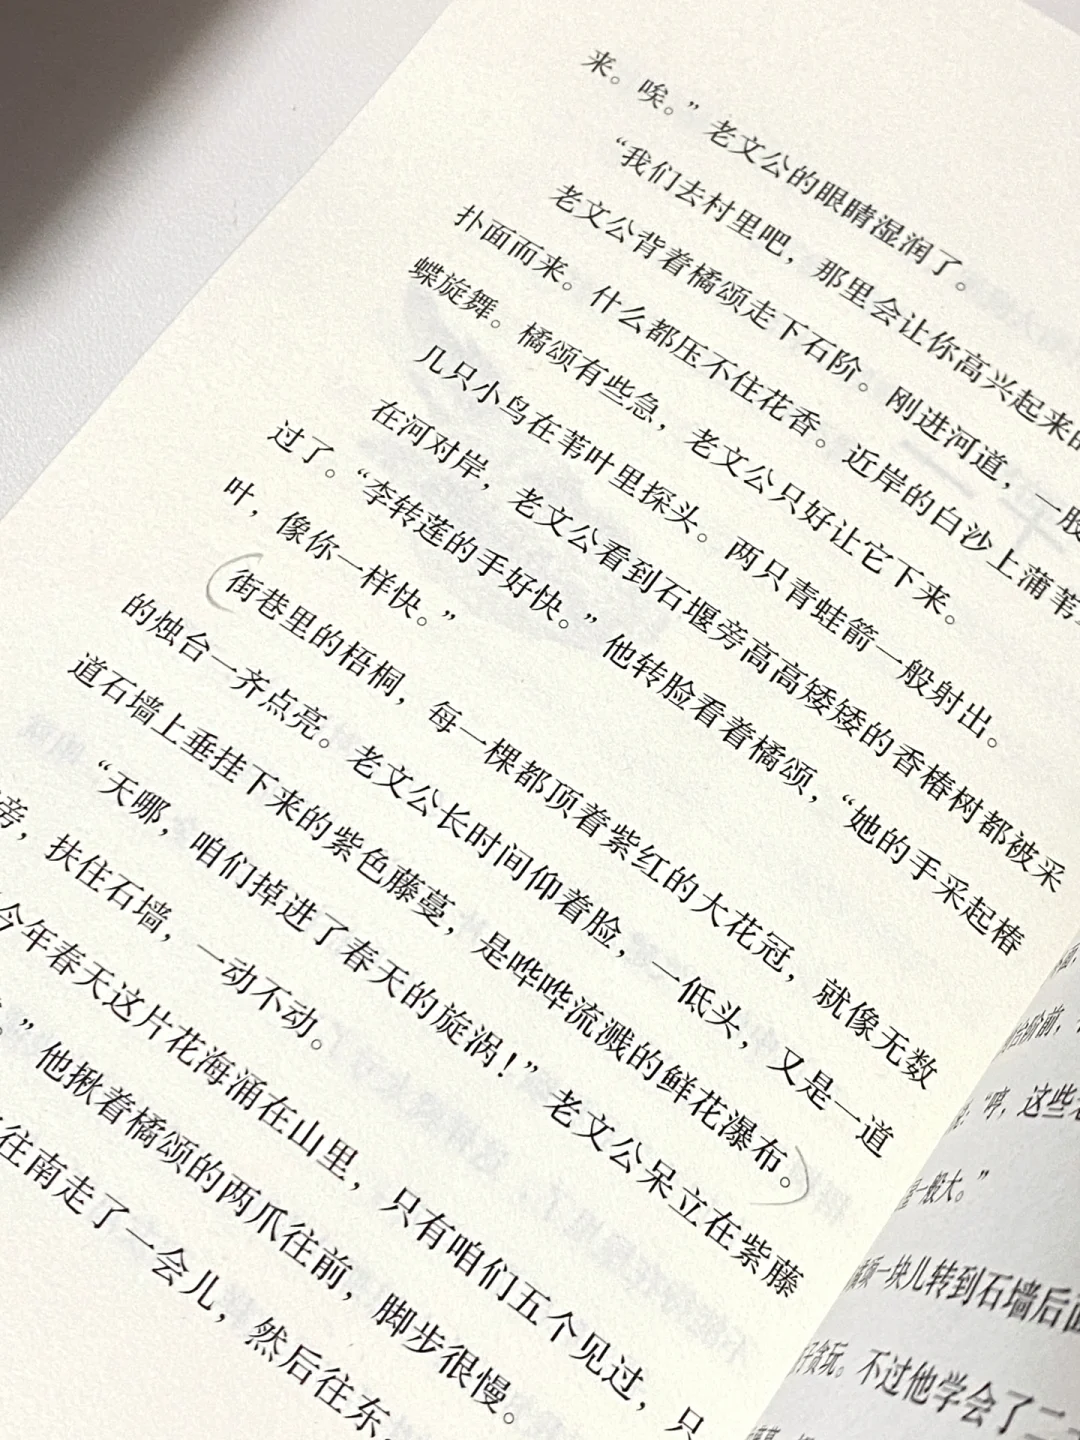 来。唉。”老文公的眼睛湿润了。
“我们去村里吧，那里会让你高兴起来的
老文公背着橘颂走下石阶。刚进河道，一股
扑面而来。什么都压不住花香。近岸的白沙上蒲苇
蝶旋舞。橘颂有些急，老文公只好让它下来。
几只小鸟在苇叶里探头。两只青蛙箭一般射出。
在河对岸，老文公看到石堰旁高高矮矮的香椿树都被采
过了。“李转莲的手好快。”他转脸看着橘颂，“她的手采起椿
叶，像你一样快。”
街巷里的梧桐，每一棵都顶着紫红的大花冠，就像无数
的烛台一齐点亮。老文公长时间仰着脸，一低头，又是一道
道石墙上垂挂下来的紫色藤蔓，是哗哗流溅的鲜花瀑布。
“天哪，咱们掉进了春天的旋涡！”老文公呆立在紫藤
旁，扶住石墙，一动不动。
今年春天这片花海涌在山里，只有咱们五个见过，只
。”他揪着橘颂的两爪往前，脚步很慢。
往南走了一会儿，然后往东，
台阶前，
“哼，这些
一般大。”
一块儿转到石墙后面
贪玩。不过他学会了二